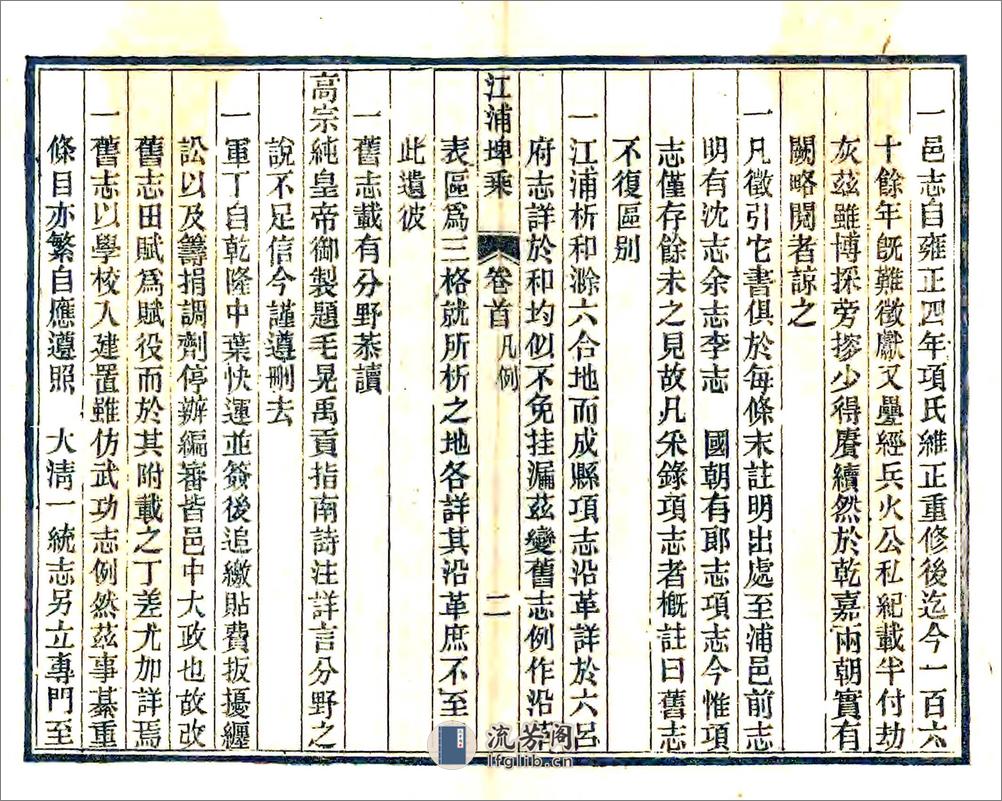 一邑志自雍正四年項氏維正重修後迄今一百六
十餘年旣難徵獻又疊經兵火公私紀載半付劫
灰茲雖博採旁搜少得賡續然於乾嘉兩朝實有
闕略閱者諒之
一凡徵引它書俱於每條末註明出處至浦邑前志
明有沈志余志李志　國朝有郎志項志今惟項
志僅存餘未之見故凡采錄項志者槪註曰舊志
不復區別
一江浦析和滁六合地而成縣項志沿革詳於六呂
府志詳於和均似不免挂漏茲變舊志例作沿革
表區爲三格就所析之地各詳其沿革庶不至
此遺彼
江浦埤乘　卷首　凡例　二
一舊志載有分野恭讀
高宗純皇帝御製題毛晃禹貢指南詩注詳言分野之
說不足信今謹遵刪去
一軍丁自乾隆中葉快運並簽後追繳貼費扳擾纏
訟以及籌捐調劑停辦編審皆邑中大政也故改
舊志田賦爲賦役而於其附載之丁差尤加詳焉
一舊志以學校入建置雖仿武功志例然茲事綦重
條目亦繁自應遵照　大清一統志另立專門至
流芳阁
lfglib.cn